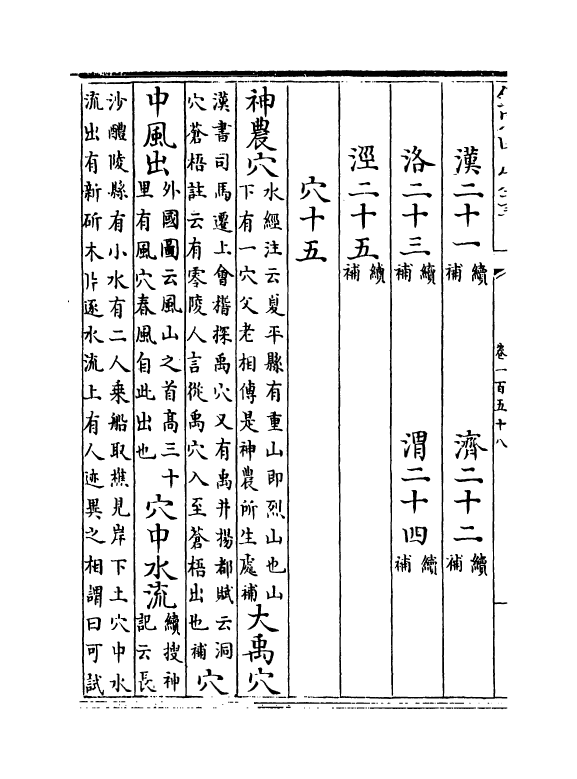 卷一百五十八
漢二十一 續補 濟二十二 續補
洛二十三 續補 渭二十四 續補
涇二十五 續補
穴十五
神農穴 水經注云夏平縣有重山即烈山也山下有一穴父老相傳是神農所生處補 大禹穴
漢書司馬遷上會稽探禹穴又有禹井揚都賦云洞穴蒼梧註云有零陵人言從禹穴入至蒼梧出也補 穴
中風出 外國圖云風山之首高三十里有風穴春風自此出也 穴中水流 續搜神記云長
沙醴陵縣有小水有二人乘船取樵見岸下土穴中水流出有新斫木片逐水流上有人迹異之相謂曰可試